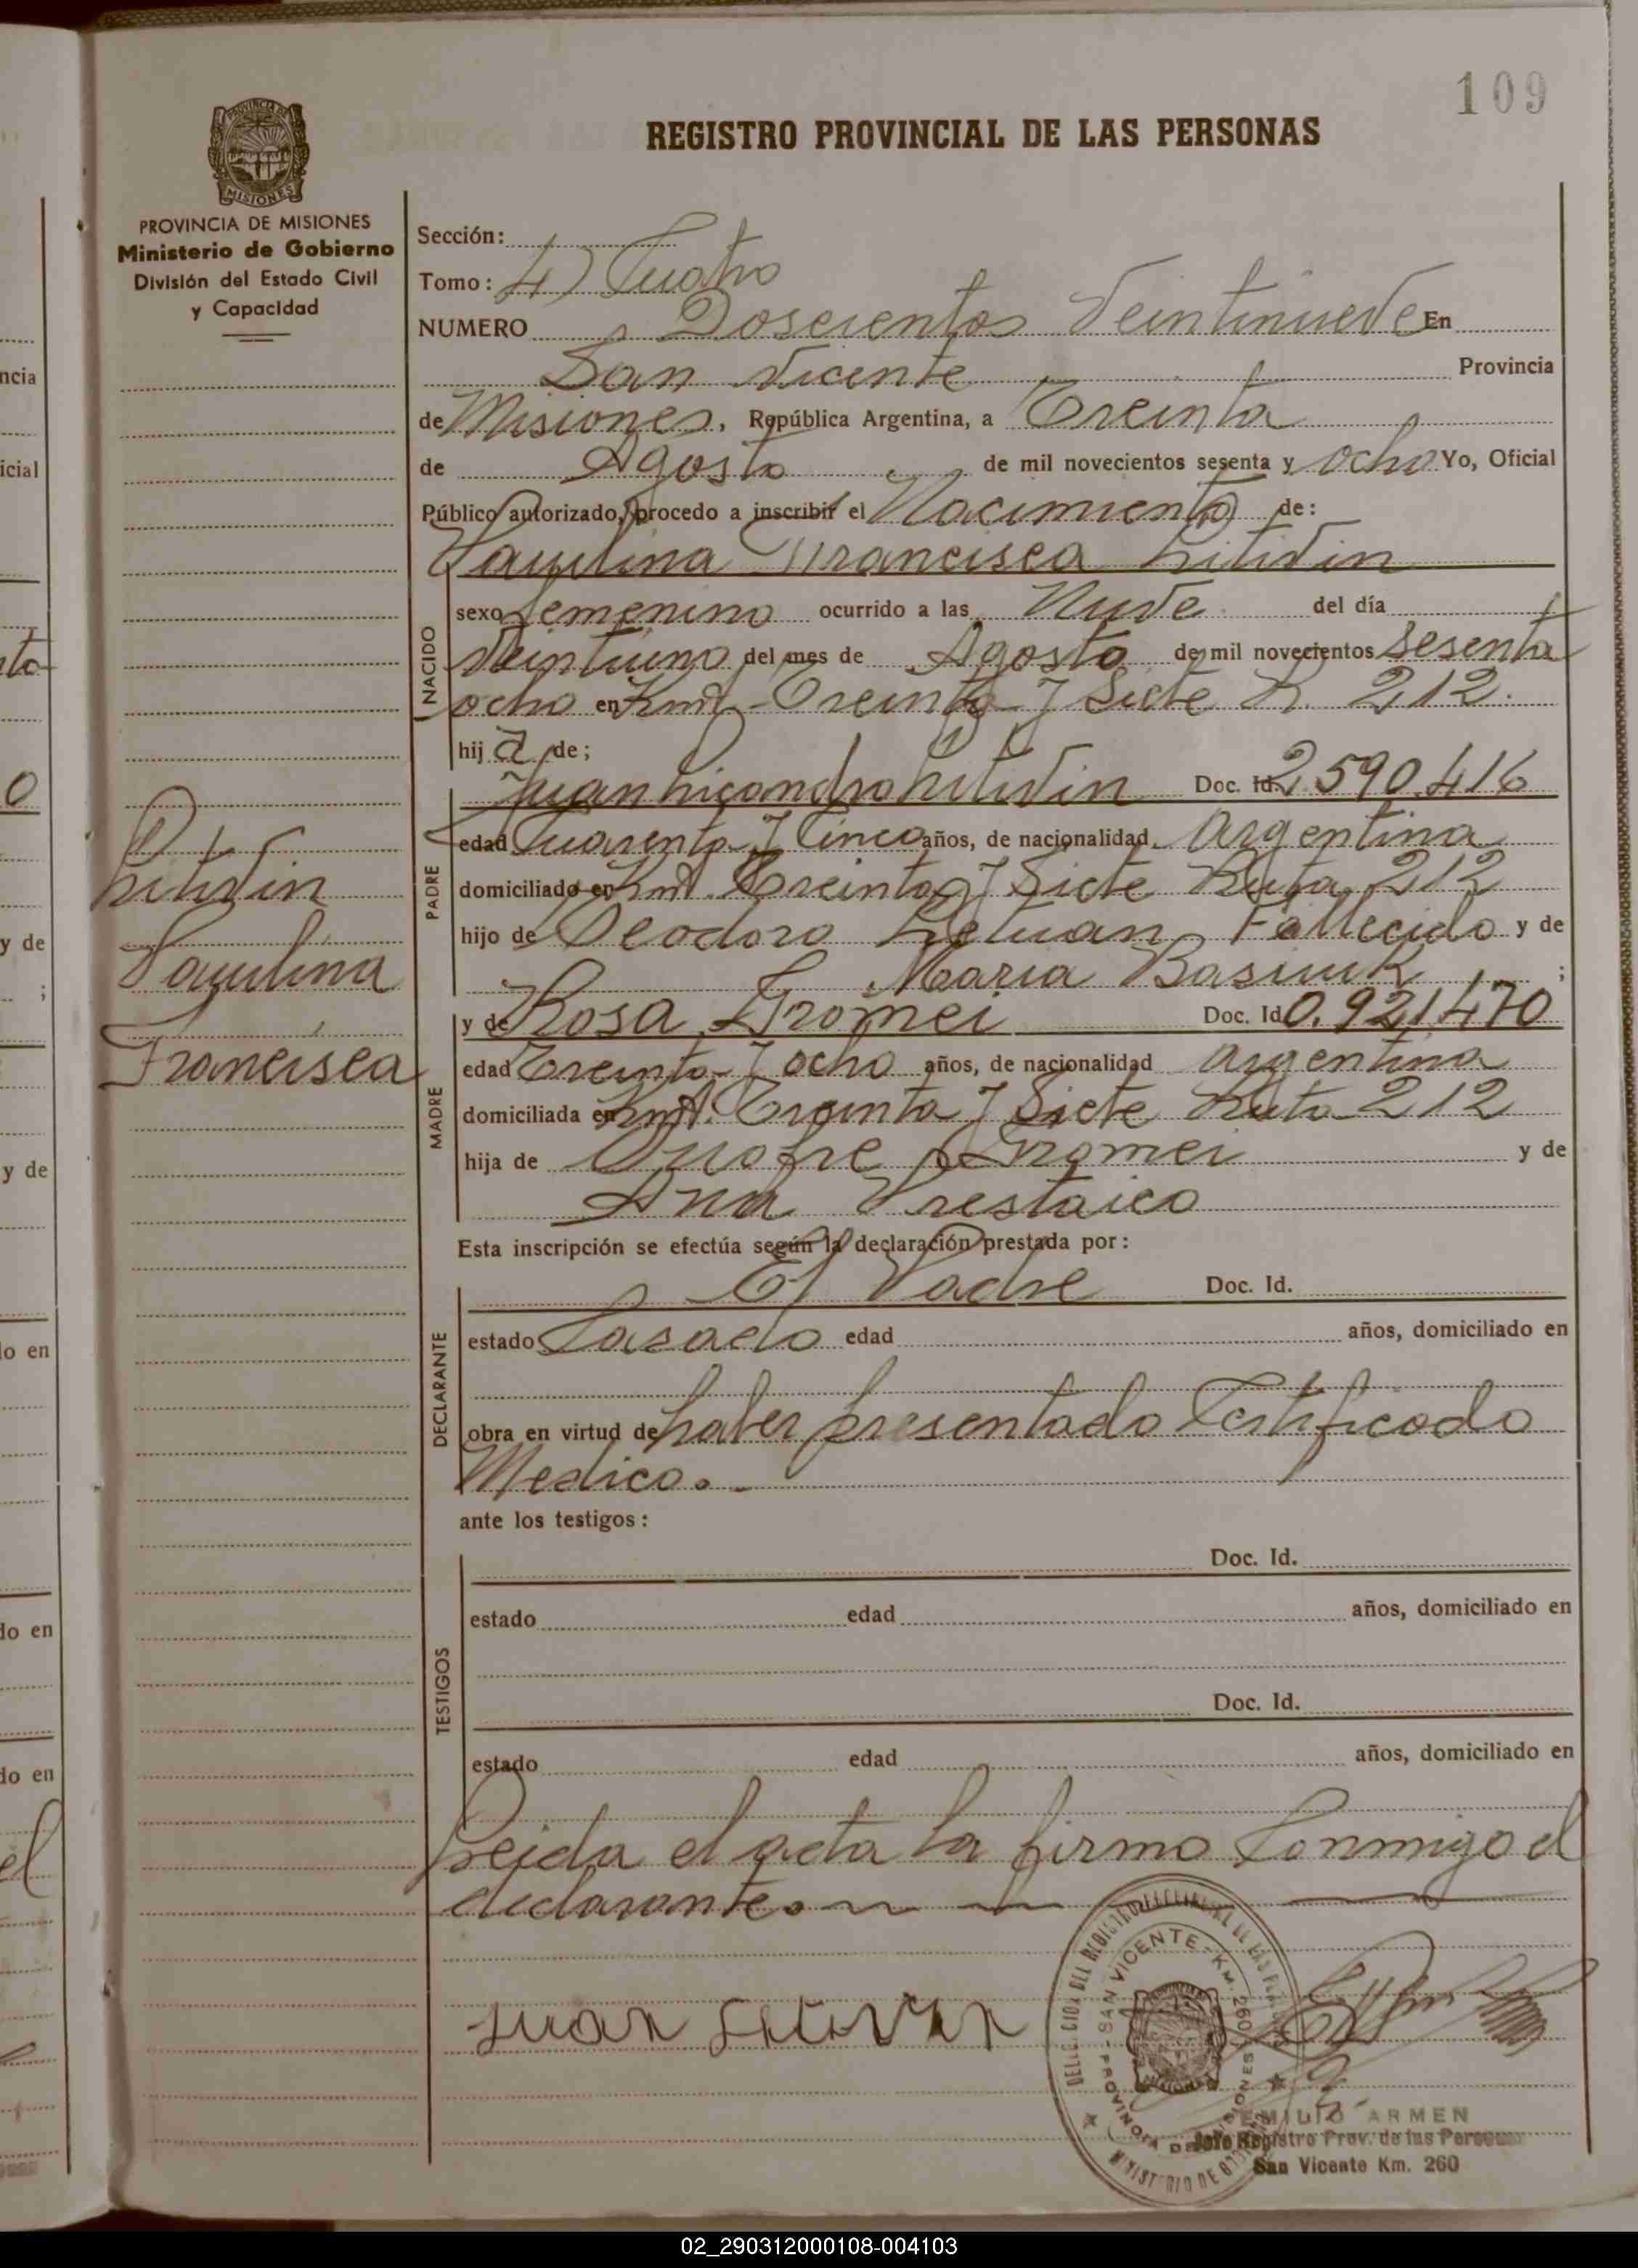 109
REGISTRO PROVINCIAL DE LAS PERSONAS
PROVINCIA DE MISIONES
MISIONES
PROVINCIA DE MISIONES
Ministerio de Gobierno
División del Estado Civil
y Capacidad
Sección:
Tomo: 4) Cuatro
NUMERO Doscientos Veintinueve En
San Vicente Provincia
de Misiones, República Argentina, a Treinta
de Agosto de mil novecientos sesenta y ocho Yo, Oficial
Público autorizado, procedo a inscribir el Nacimiento de:
Paulina Francisca Litivin
NACIDO
sexo Femenino ocurrido a las Nueve del día
Veintiuno del mes de Agosto de mil novecientos sesenta
ocho en Kmt. Treinta y Siete R. 212.
hij a de;
PADRE
Juan Licandro Litivin Doc. Id. 2.590.416
edad Cuarenta y Cinco años, de nacionalidad Argentina
domiciliado en Kmt. Treinta y Siete Ruta 212
hijo de Teodoro Fallecido y de
Maria Basiuk ;
MADRE
y de Rosa Gromei Doc. Id 0.921.470
edad Treinta y ocho años, de nacionalidad Argentina
domiciliada en Kmt. Treinta y Siete Ruta 212
hija de Onofre Gromei y de
Ana Prestaico
Esta inscripción se efectúa según la declaración prestada por:
DECLARANTE
El Padre Doc. Id.
estado Casado edad años, domiciliado en
obra en virtud de haber presentado Certificado
Medico.-
ante los testigos:
TESTIGOS
Doc. Id.
estado edad años, domiciliado en
Doc. Id.
estado edad años, domiciliado en
Leida el acta la firma Conmigo el
declarante.
Litivin
Paulina
Francisca
Juan
SAN VICENTE - KM. 260
PROVINCIA DE MISIONES
EMILIO ARMEN
Jefe Registro Prov. de las Personas
San Vicente Km. 260
ncia
icial
y de
;
y de
do en
do en
do en
el
02_290312000108-004103